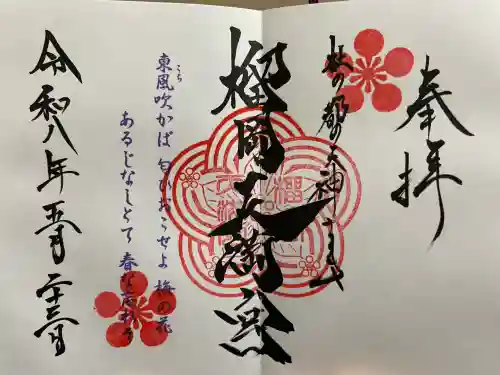 奉拝
杜の都の天神さま
榴岡天満宮
東風吹かば 匂ひおこせよ 梅の花
こち
あるじなしとて 春な忘れそ
令和八年五月